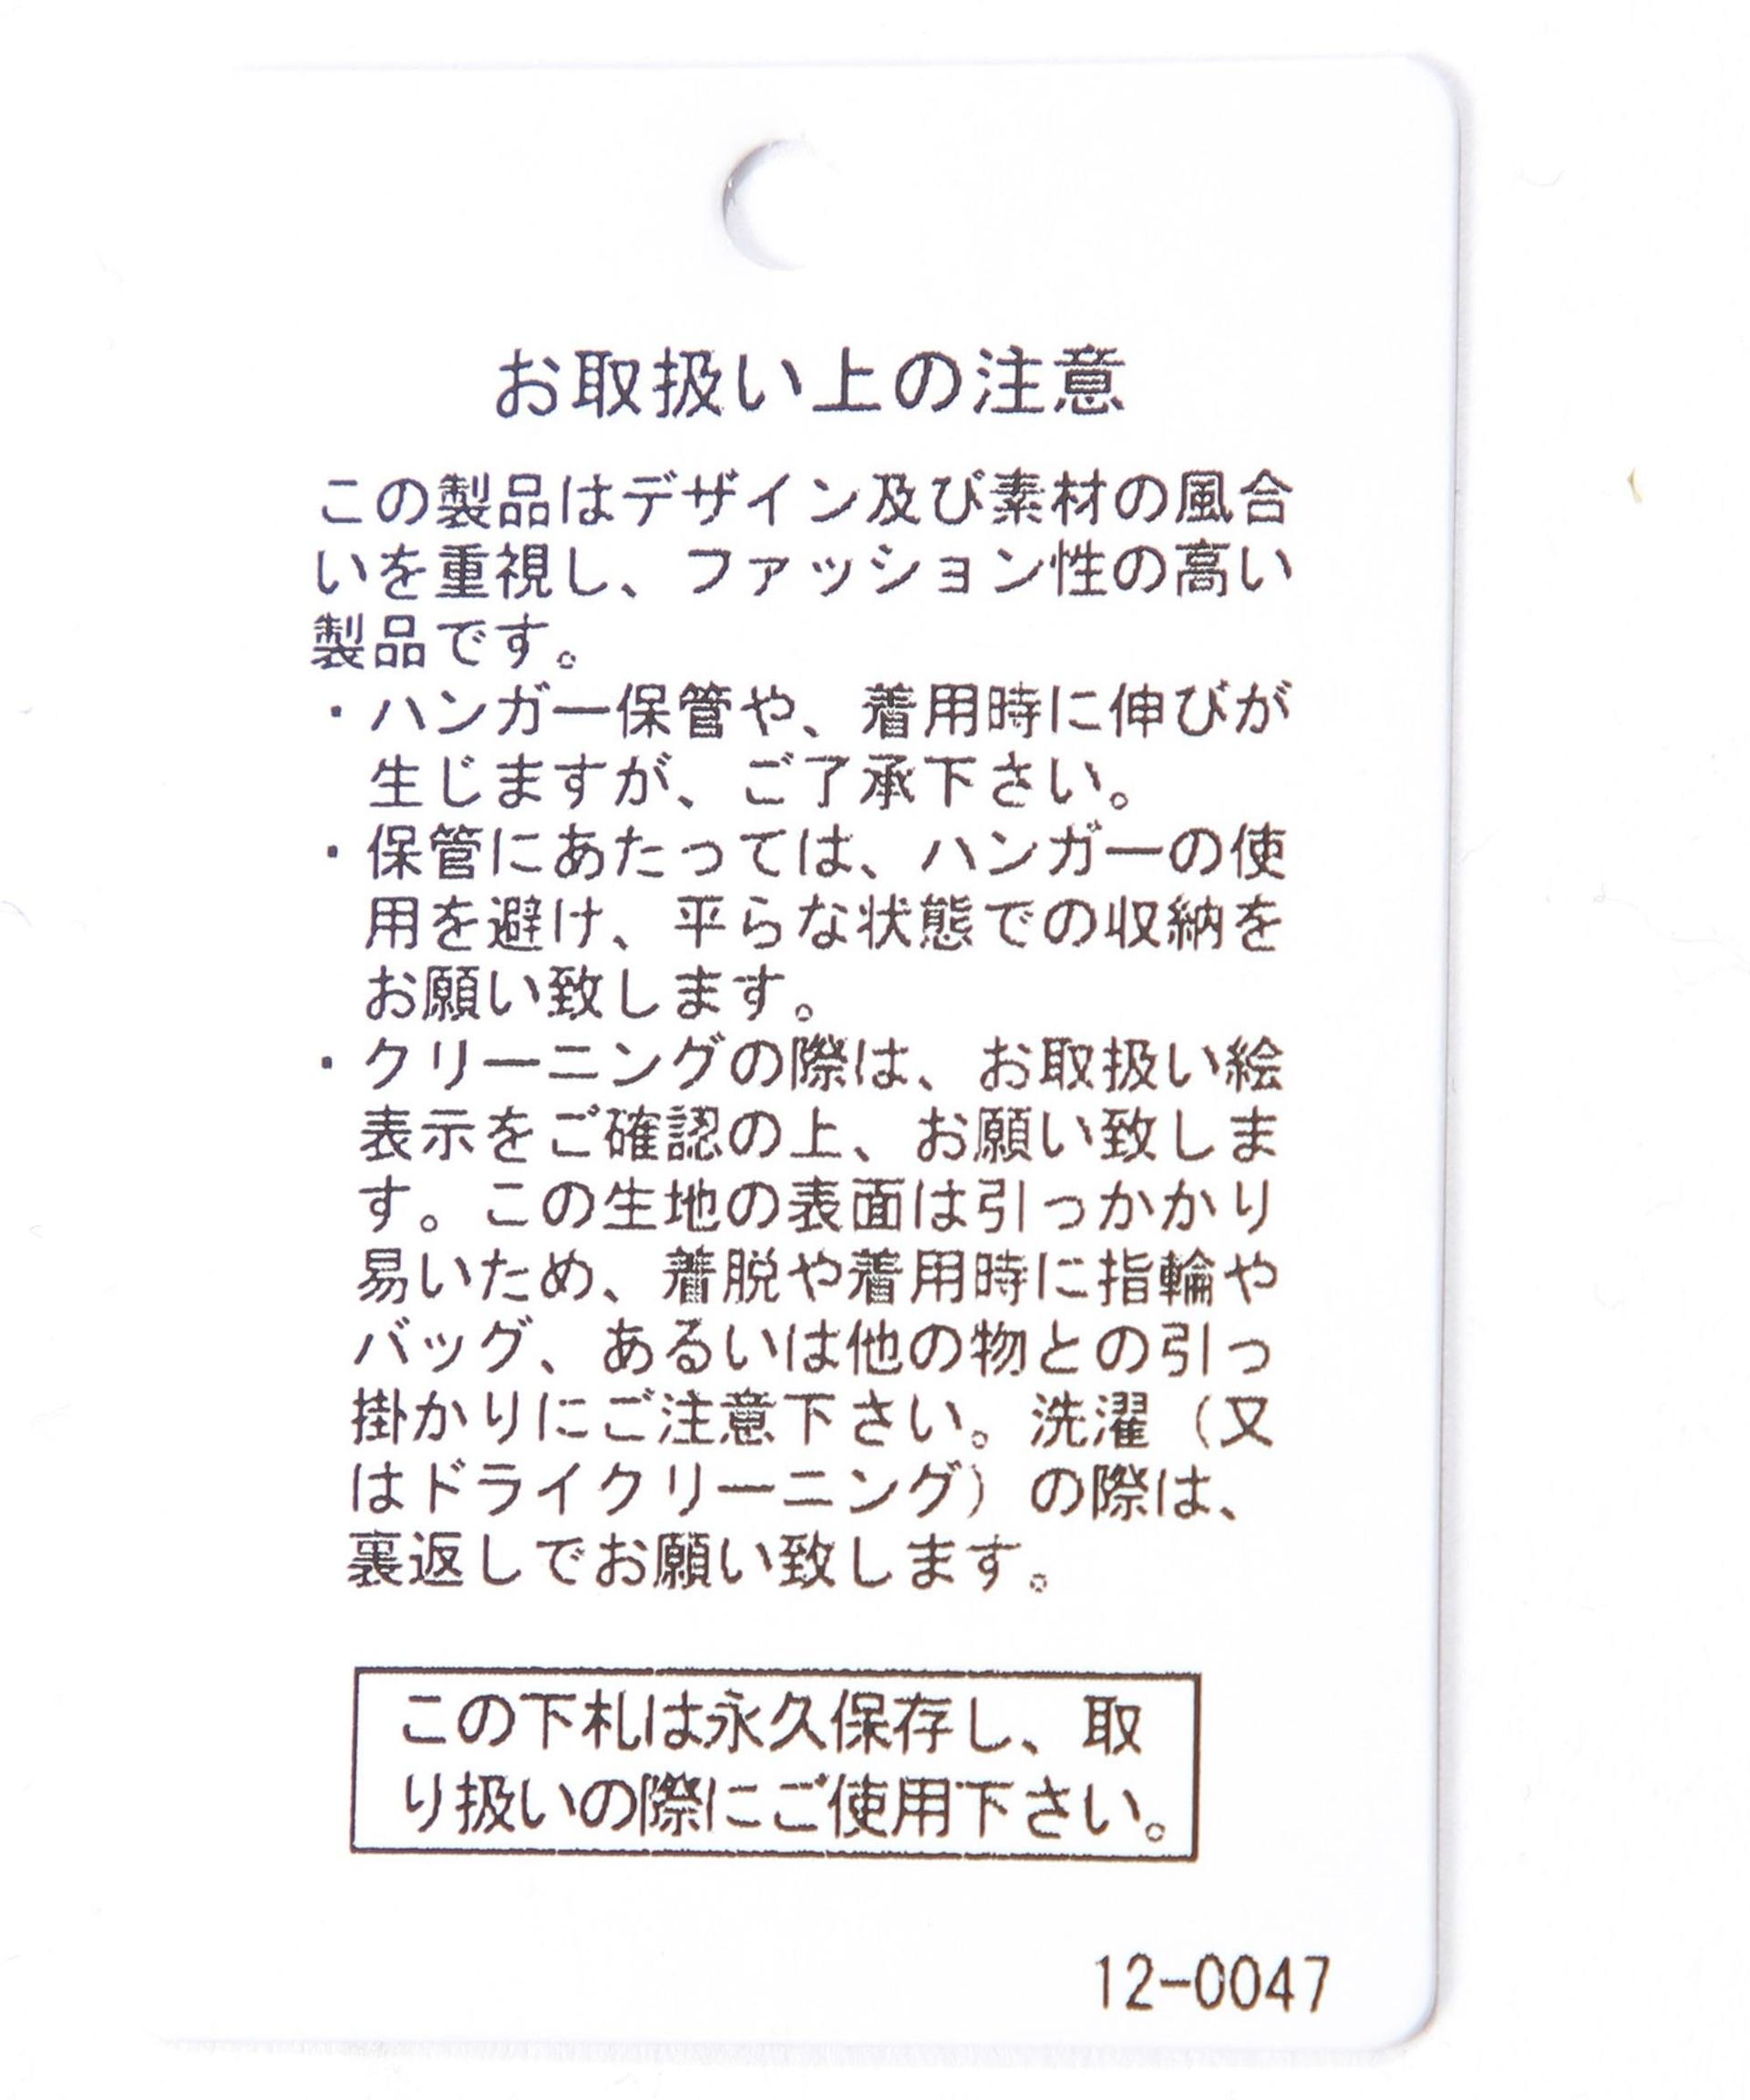 お取扱い上の注意
この製品はデザイン及び素材の風合
いを重視し、ファッション性の高い
製品です。
・ハンガー保管や、着用時に伸びが
生じますが、ご了承下さい。
・保管にあたっては、ハンガーの使
用を避け、平らな状態での収納を
お願い致します。
・クリーニングの際は、お取扱い絵
表示をご確認の上、お願い致しま
す。この生地の表面は引っかかり
易いため、着脱や着用時に指輪や
バッグ、あるいは他の物との引っ
掛かりにご注意下さい。洗濯（又
はドライクリーニング）の際は、
裏返しでお願い致します。
この下札は永久保存し、取
り扱いの際にご使用下さい。
12-0047